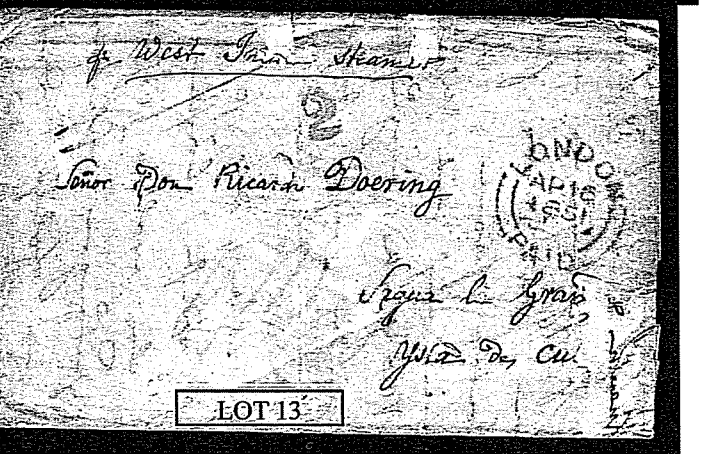 pr West India Steamer
2
Señor Don Ricardo Doering
LONDON
AP 16
PAID
Sagua la Grande
Ysla de Cu
LOT 13